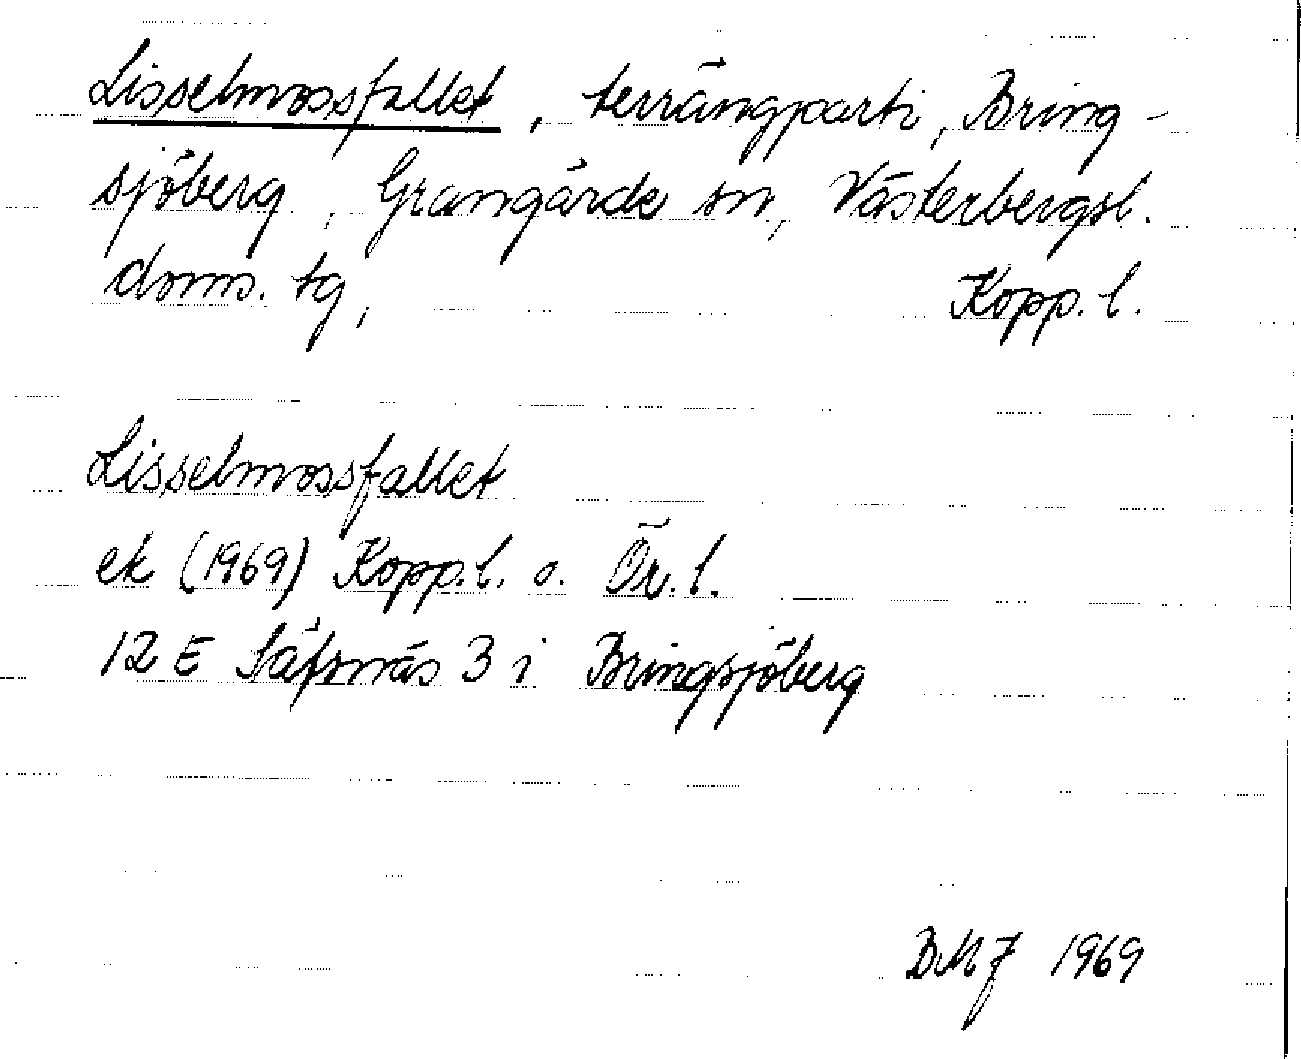 Lisselmossfallet, terrängparti, Bring-
sjöberg, Grangärde sn, Västerbergsl.
doms. tg, Kopp. l.
Lisselmossfallet
ek (1969) Kopp. l. o. Ör. l.
12 E Säfsnäs 3 i Bringsjöberg
BMJ 1969